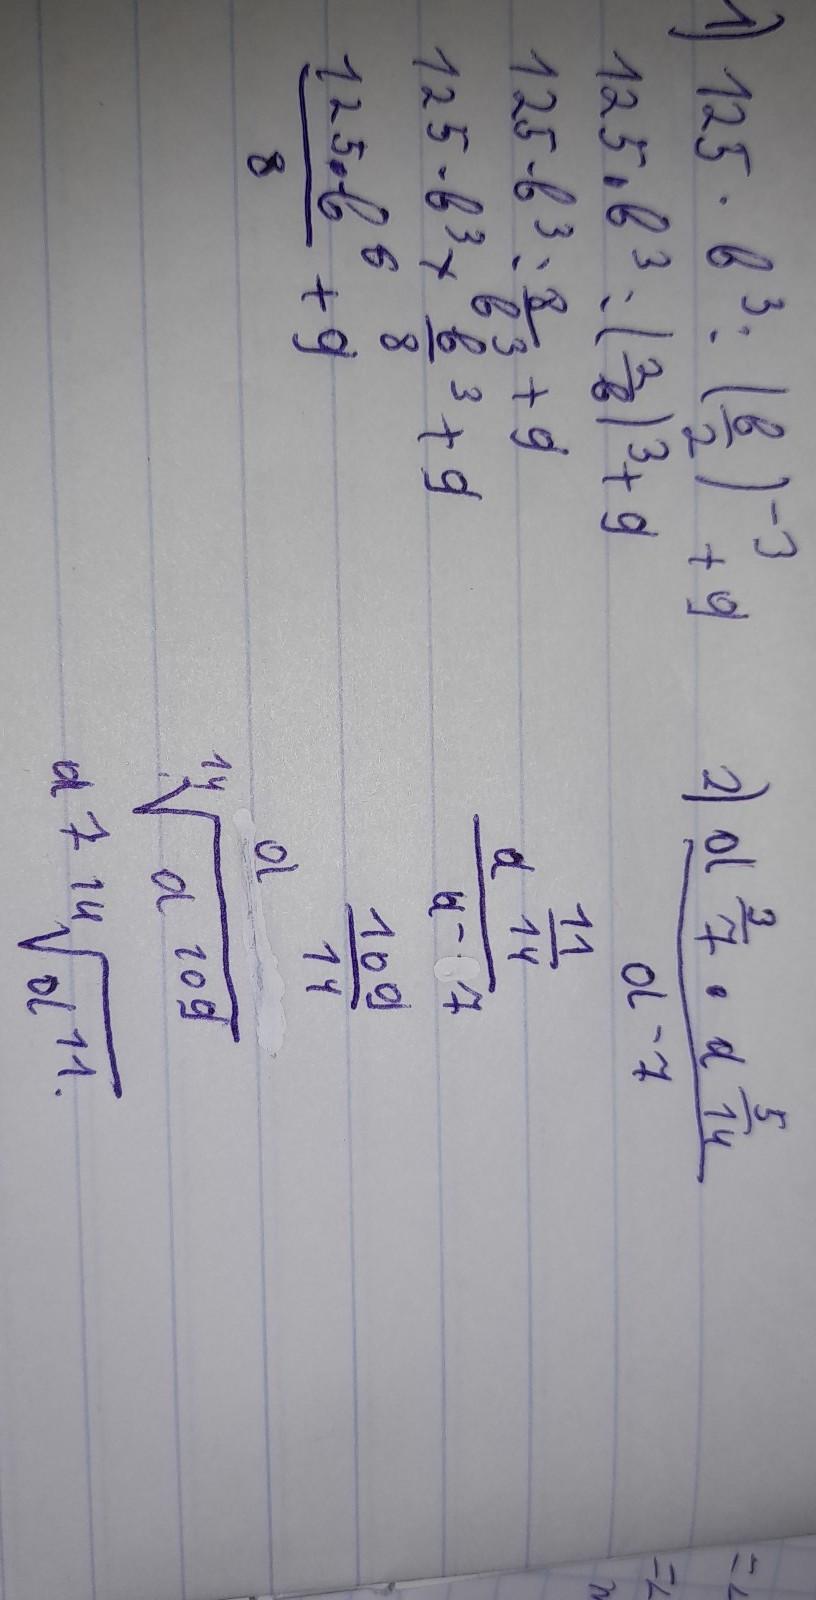 1) 125 · b³ : (b/2)⁻³ + 9
125 · b³ : (2/b)³ + 9
125 · b³ : 8/b³ + 9
125 · b³ × b³/8 + 9
125 · b⁶/8 + 9
2) a^(3/7) · a^(5/14) / a⁻⁷
a^(11/14) / a⁻⁷
a^(109/14)
¹⁴√a¹⁰⁹
a⁷ ¹⁴√a¹¹.